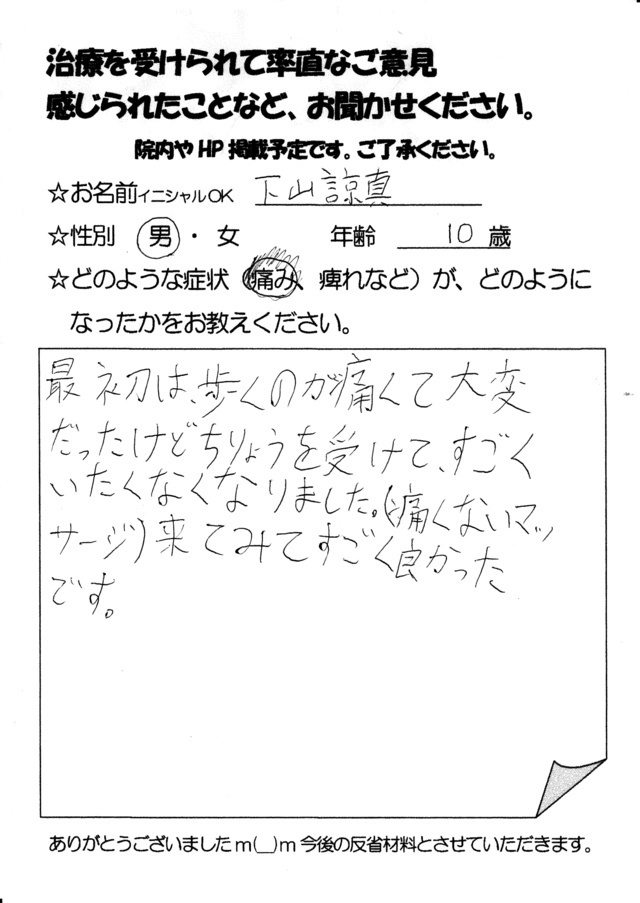 治療を受けられて率直なご意見
感じられたことなど、お聞かせください。
院内やHP掲載予定です。ご了承ください。
☆お名前イニシャルOK 下山諒真
☆性別 男・女 年齢 10歳
☆どのような症状（痛み、痺れなど）が、どのように
なったかをお教えください。
最初は、歩くのが痛くて大変
だったけどちりょうを受けて、すごく
いたくなくなりました。(痛くないマッ
サージ)来てみてすごく良かった
です。
ありがとうございましたm(__)m今後の反省材料とさせていただきます。